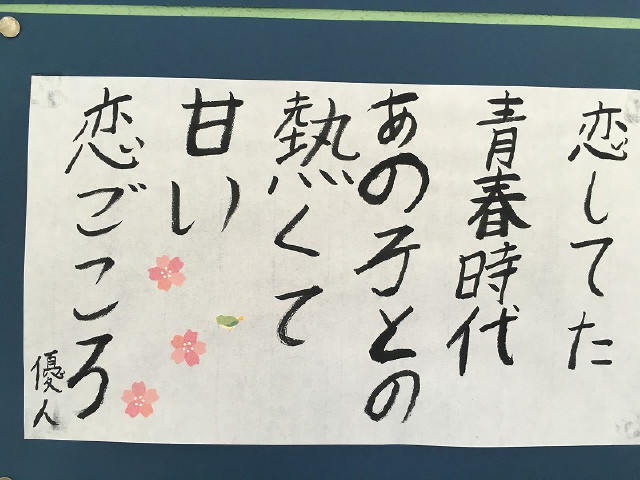 恋してた
青春時代
あの子との
熱くて
甘い
恋ごころ
優人